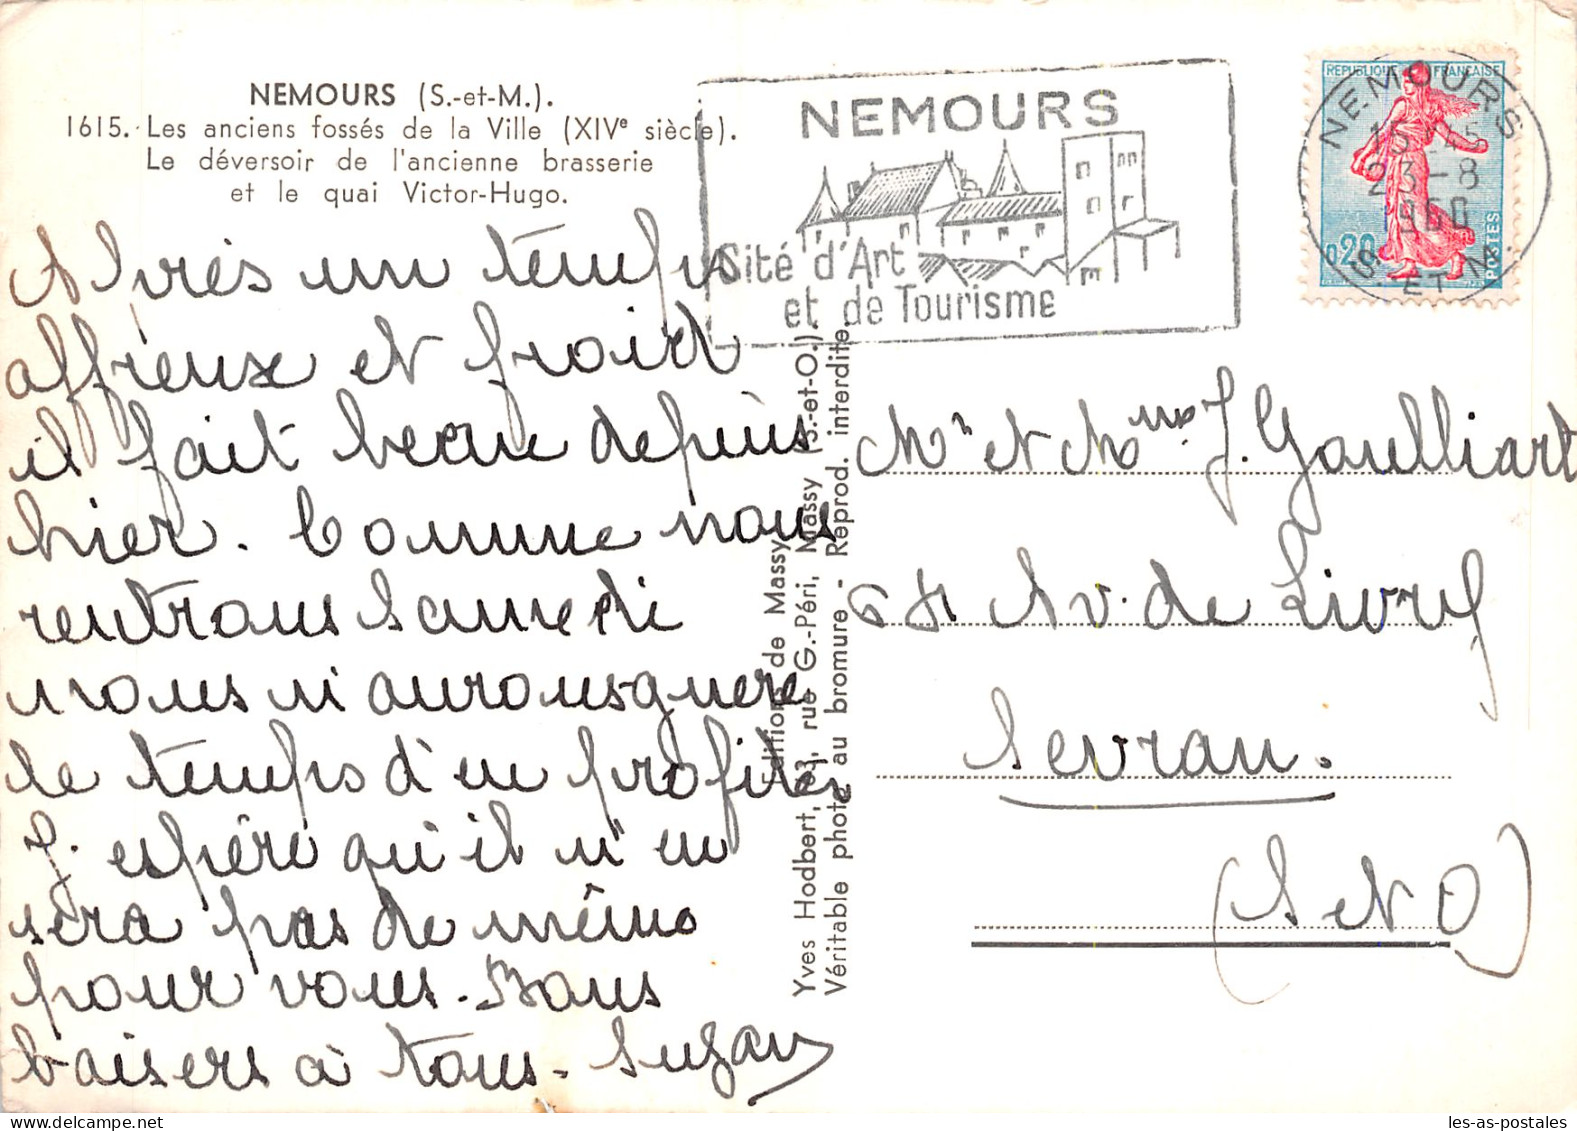 NEMOURS (S.-et-M.).
1615. Les anciens fossés de la Ville (XIVe siècle).
Le déversoir de l'ancienne brasserie
et le quai Victor-Hugo.
Après un temps
affreux et froid
il fait beau depuis
hier. Comme nous
rentrons samedi
nous n'aurons guère
le temps d'en profiter
J'espère qu'il n'en
sera pas de même
pour vous. Bons
baisers à tous. Suzan
NEMOURS
Sité d'Art
et de Tourisme
REPUBLIQUE FRANÇAISE
0,20
POSTES
NEMOURS
15 H 45
23-8
1960
S. ET M.
Editions de Massy
Yves Hodbert, 63, rue G.-Péri, Massy (S.-et-O.).
Véritable photo au bromure - Reprod. interdite.
Mr et Mme J. Goulliart
64 Av. de Livry
Sevran.
(S et O)
les-as-postales